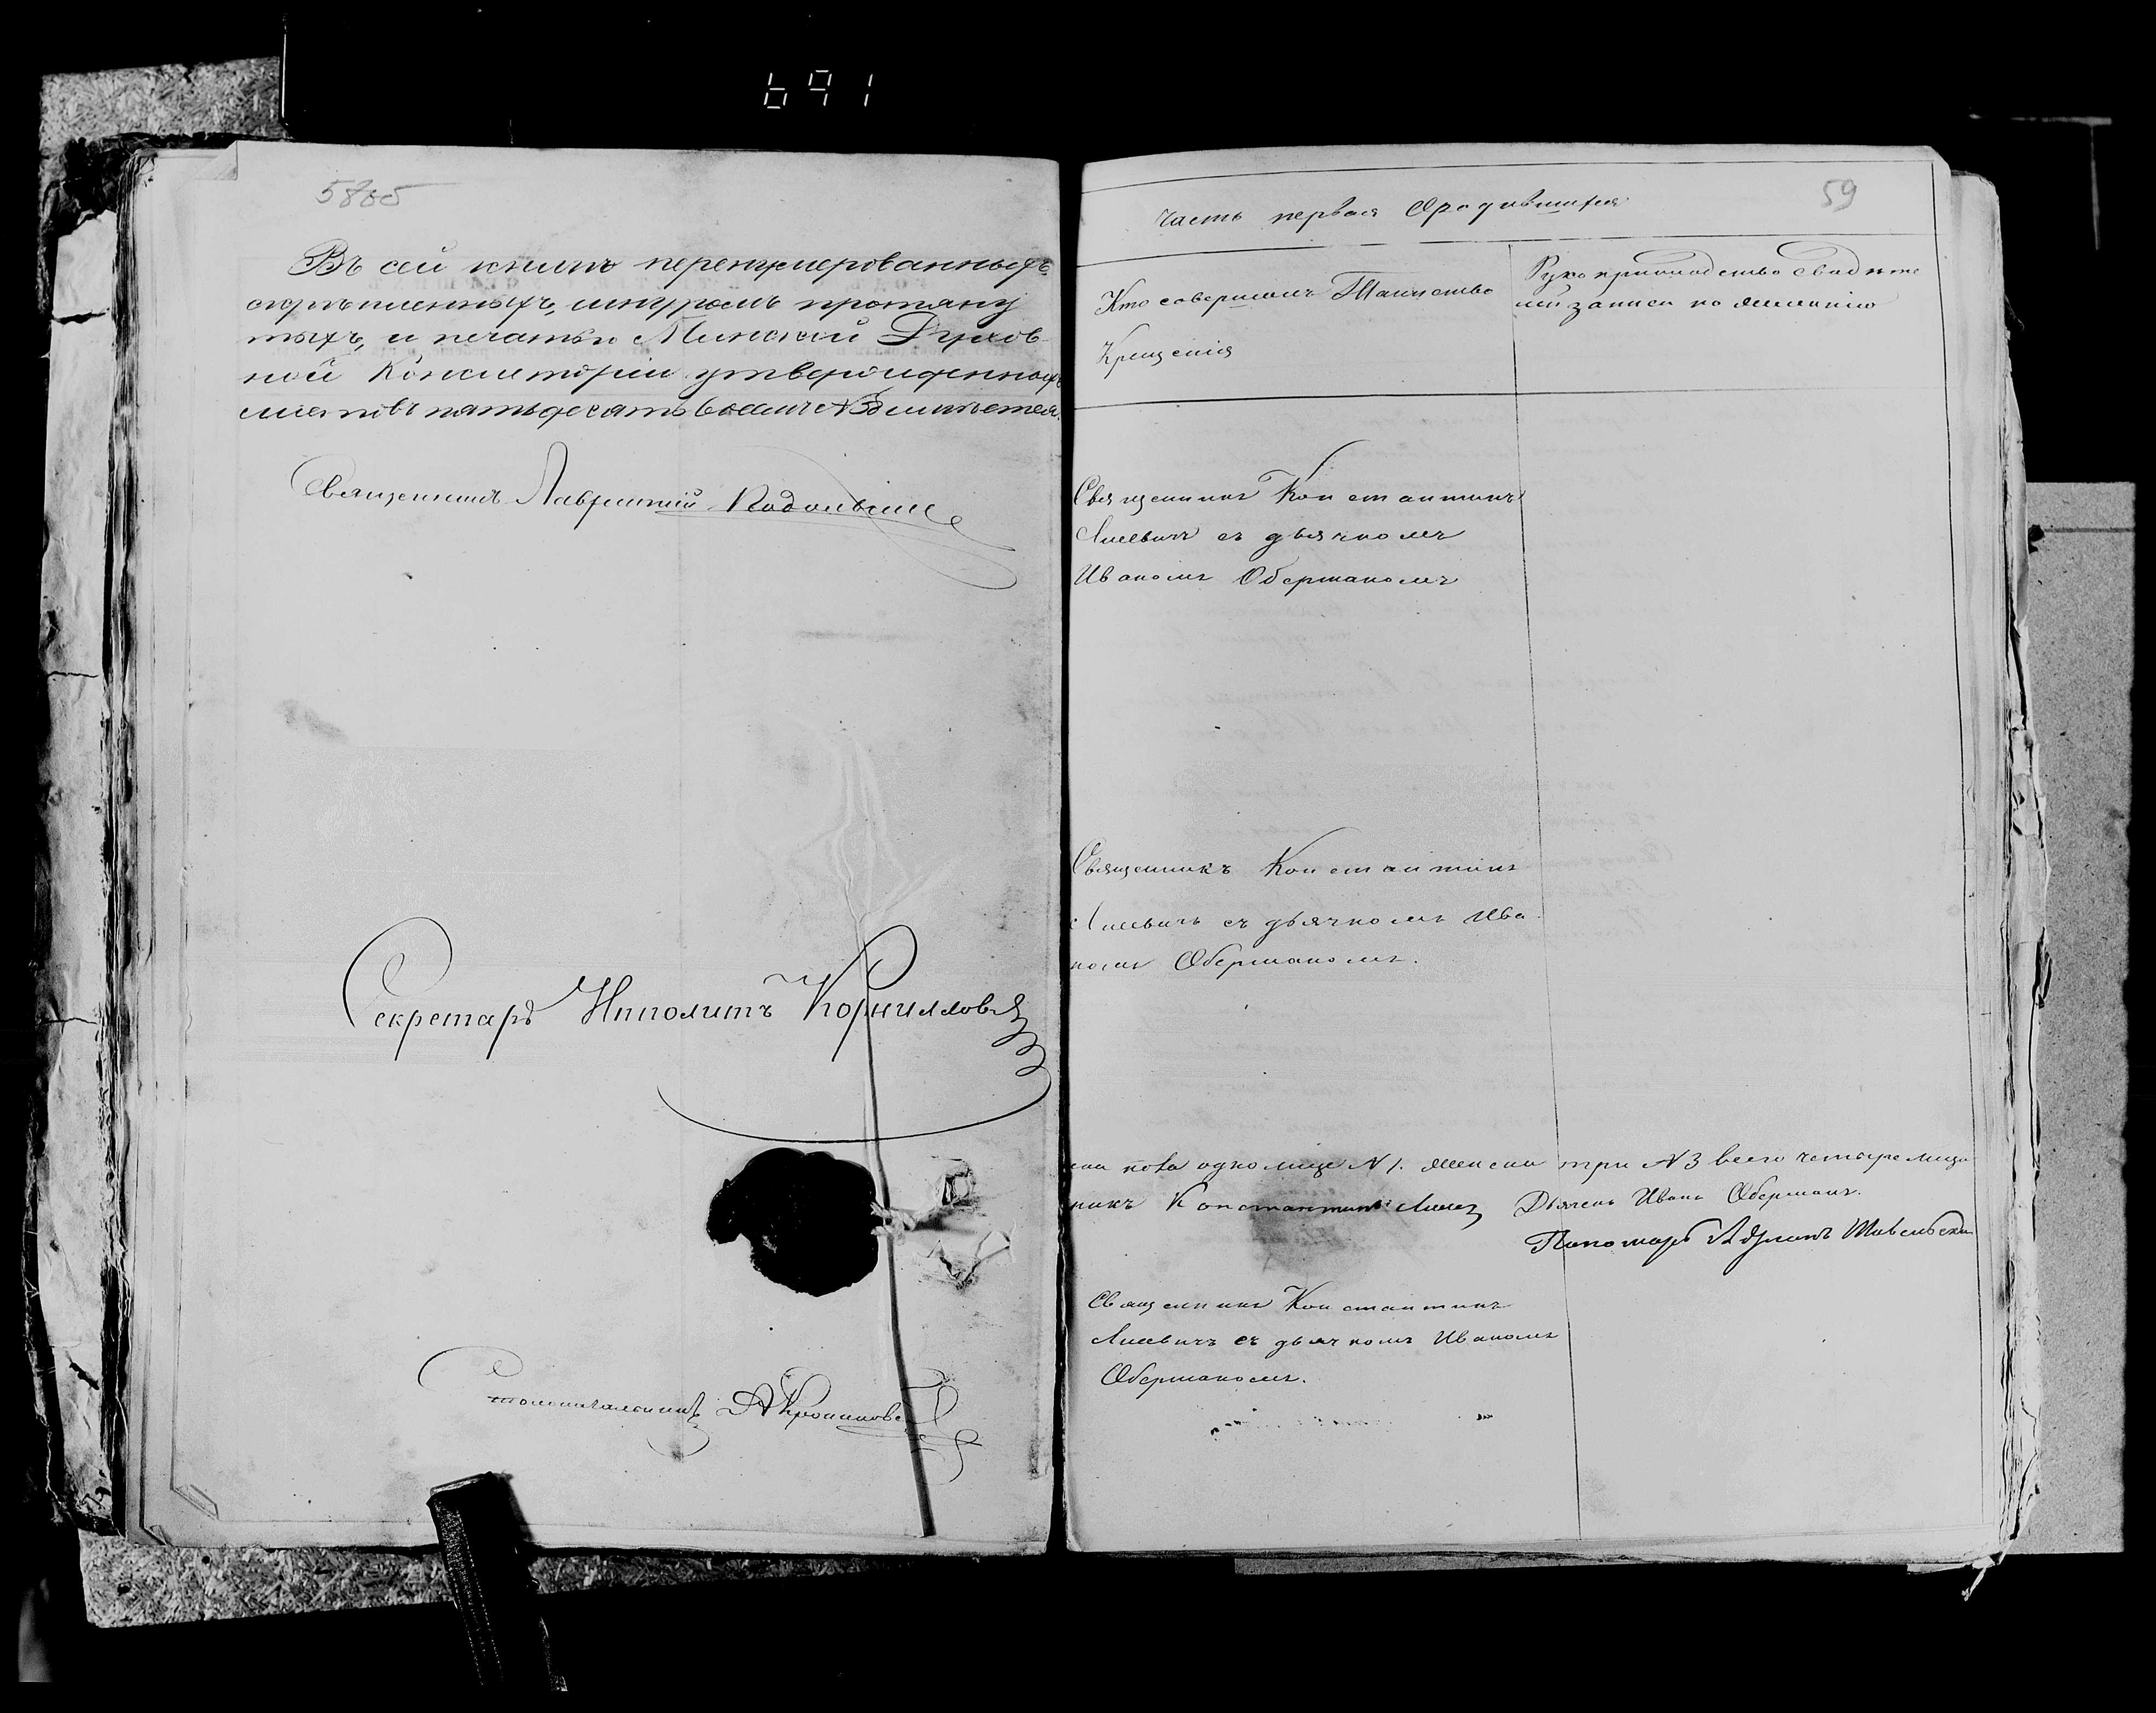 691
58об
Въ сей книгѣ перенумерованныхъ
скрѣпленныхъ, шнуромъ протяну
тыхъ, и печатью Минской Духов
ной Консисторіи утвержденныхъ
листовъ пятьдесятъ восемь №58 имѣется.
Священникъ Лаврентій
Секретарь Ипполитъ Корниловъ
Столоначальникъ
59
Часть первая О родившихся
Кто совершалъ Таинство
Крещенія
Рукоприкладство свидѣте
лей записи по желанію
Священникъ Константинъ
Лисевичъ съ дьячкомъ
Иваномъ Оберманомъ
Священникъ Константинъ
Лисевичъ съ дьячкомъ Ива
номъ Оберманомъ.
пола одно лице №1. женска три №3 всего четыре лица
никъ Константинъ Дьячекъ Иванъ Оберманъ.
Пономарь
Священникъ Константинъ
Лисевичъ съ дьячкомъ Иваномъ
Оберманомъ.